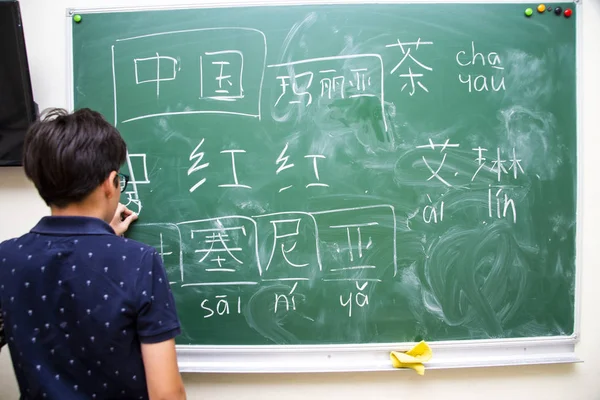 中国 玛丽亚 茶 cha
yaū
红 红 艾. 琳
ài lín
塞 尼 亚
sāi ní yǎ